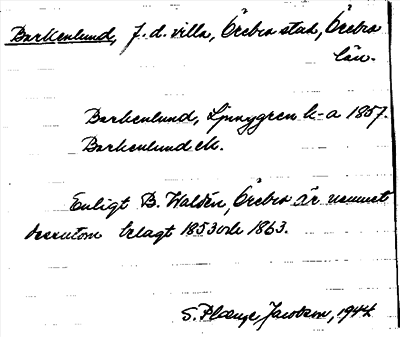 Barkenlund, f.d. villa, Örebro stad, Örebro
län.
Barkenlund, Ljunggren k-a 1857.
Barkenlund ek.
Enligt B. Waldén, Örebro är namnet
dessutom belagt 1853 och 1863.
S. Plænge Jacobson, 1944